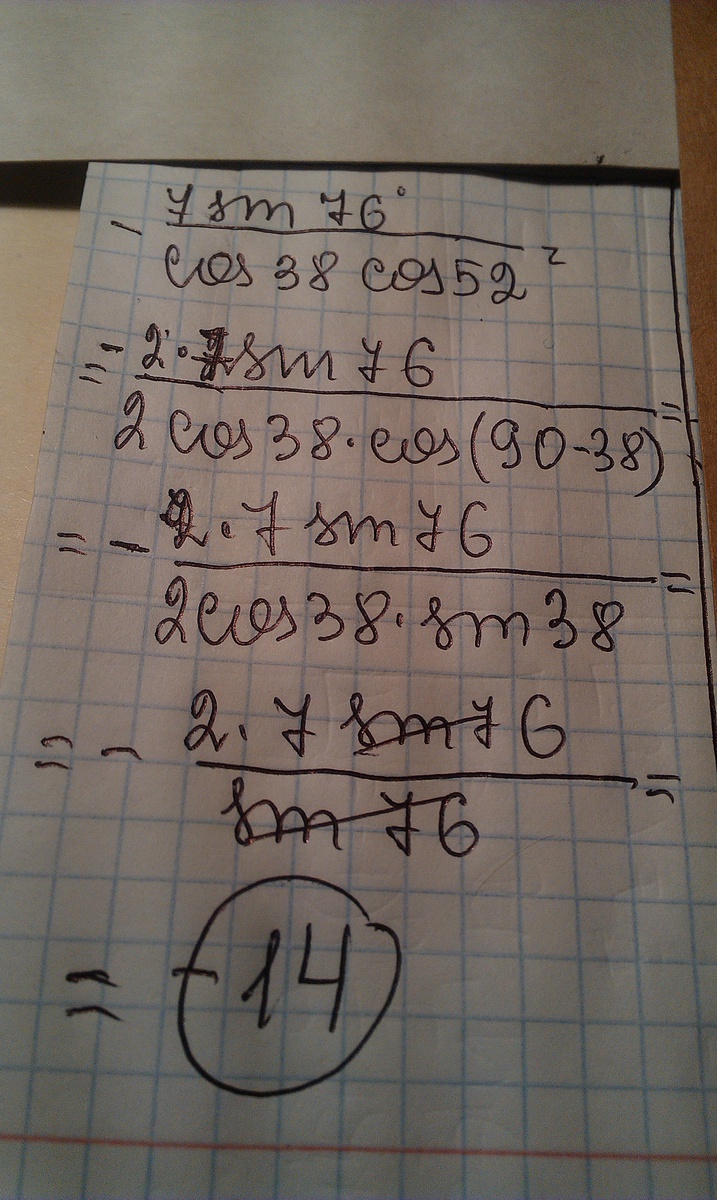 - 7 sin 76°
cos 38 cos 52 =
= - 2 · 7 sin 76
2 cos 38 · cos (90 - 38) =
= - 2 · 7 sin 76
2 cos 38 · sin 38 =
= - 2 · 7 sin 76
sin 76 =
= -14